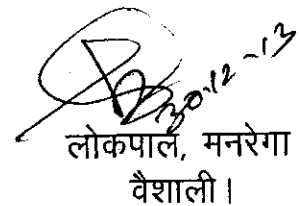 30-12-13
लोकपाल, मनरेगा
वैशाली।